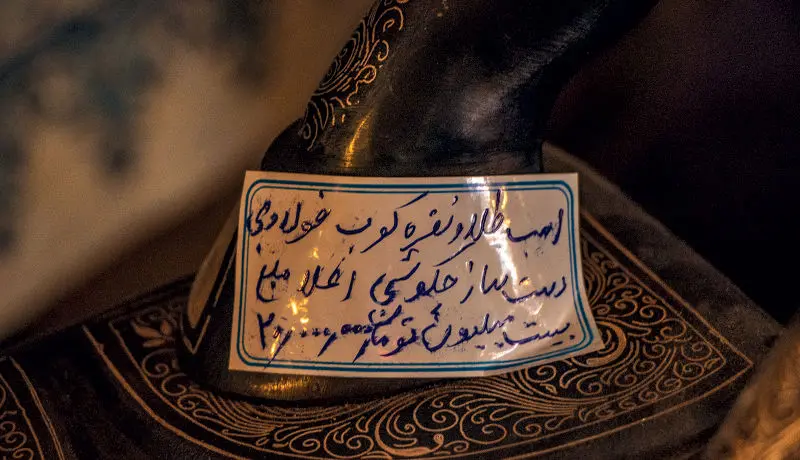 اسب طلا و نقره کوب فولادی
دست ساز حکوشی اعلا
بیست میلیون تومان ۲۰,۰۰۰,۰۰۰